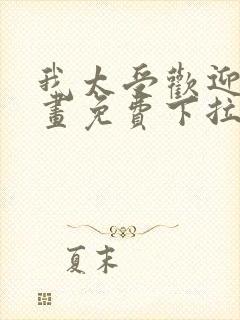 我太受歡迎
畫免費下拉
夏末